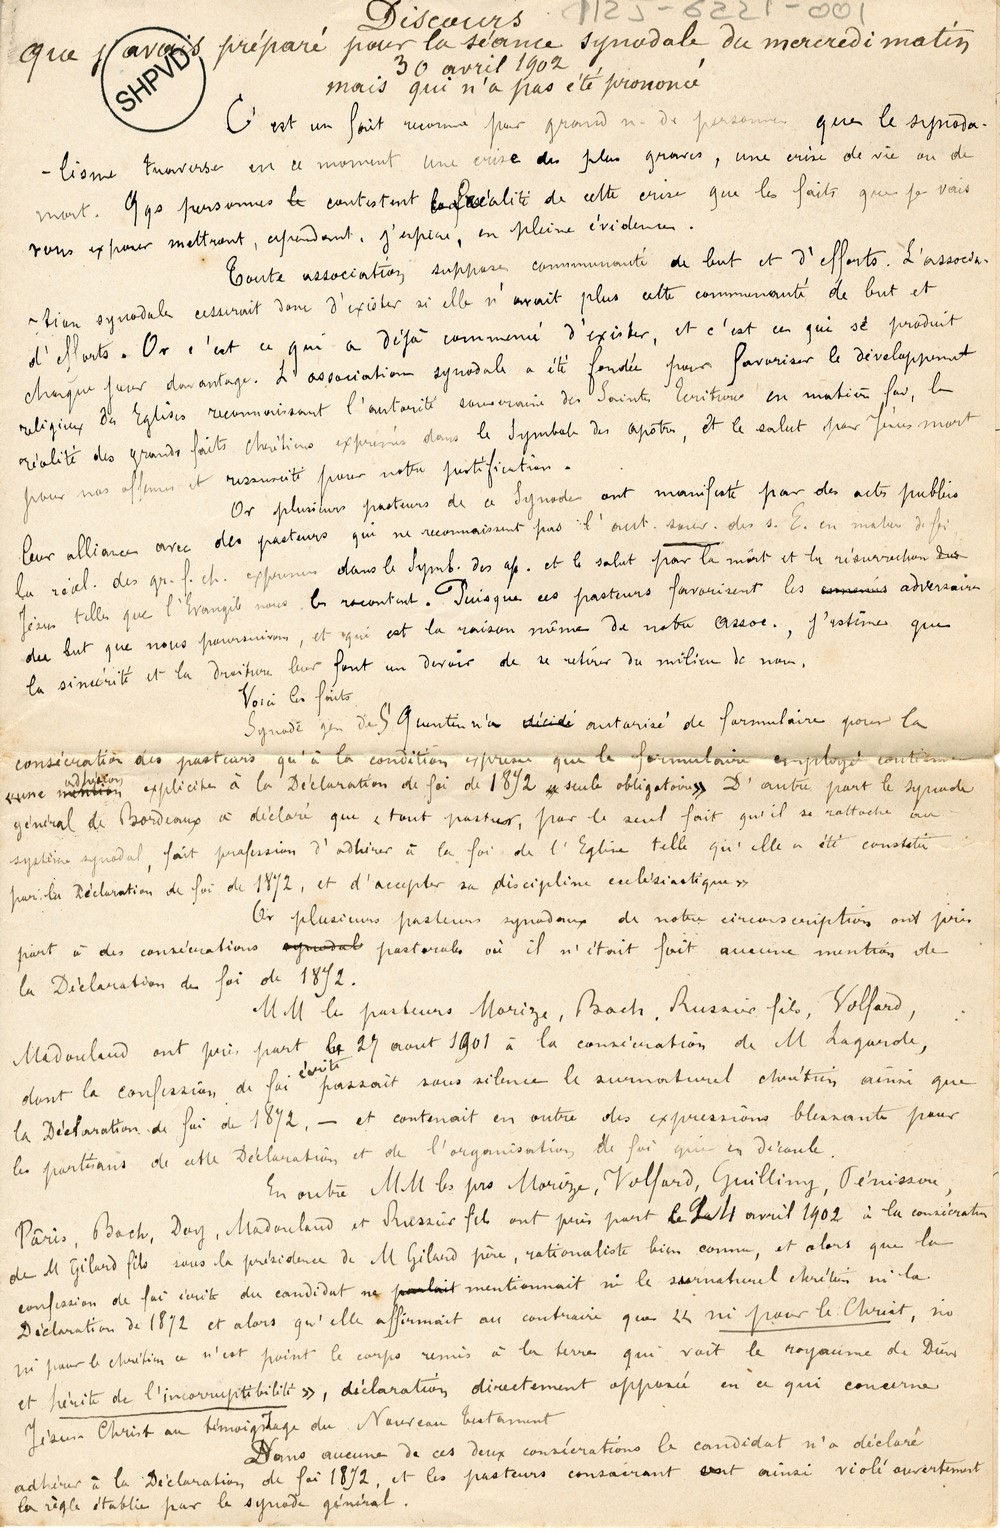 1125-6221-001
Discours
que j'avais préparé pour la séance synodale du mercredi matin
30 avril 1902
mais qui n'a pas été prononcé
SHPVD
C'est un fait reconnu par grand n. de personnes que le synoda-
-lisme traverse en ce moment une crise des plus graves, une crise de vie ou de
mort. Qqs personnes contestent la réalité de cette crise que les faits que je vais
vous exposer mettront, cependant, j'espère, en pleine évidence.
Toute association suppose communauté de but et d'efforts. L'associa-
-tion synodale cesserait donc d'exister si elle n'avait plus cette communauté de but et
d'efforts. Or c'est ce qui a déjà commencé d'exister, et c'est ce qui se produit
chaque jour davantage. L'association synodale a été fondée pour favoriser le développement
religieux des Eglises reconnaissant l'autorité souveraine des Saintes Ecritures en matière foi, la
réalité des grands faits chrétiens exprimés dans le Symbole des apôtres, et le salut par Jésus mort
pour nos offenses et ressuscité pour notre justification.
Or plusieurs pasteurs de ce Synode ont manifesté par des actes publics
leur alliance avec des pasteurs qui ne reconnaissent pas l'aut. souv. des S. E. en matière de foi
la réal. des gr. f. ch. exprimés dans le Symb. des ap. et le salut par la mort et la résurrection de
Jésus telles que l'Evangile nous les racontent. Puisque ces pasteurs favorisent les adversaires
du but que nous poursuivons, et qui est la raison même de notre assoc., j'estime que
la sincérité et la droiture leur font un devoir de se retirer du milieu de nous.
Voici les faits
Synode gén de St Quentin n'a décidé autorisé de formulaire pour la
consécration des pasteurs qu'à la condition expresse que le formulaire employé contienne
«une mention adhésion explicite à la Déclaration de foi de 1872 «seule obligatoire» D'autre part le synode
général de Bordeaux a déclaré que «tout pasteur, par le seul fait qu'il se rattache au
système synodal, fait profession d'adhérer à la foi de l'Eglise telle qu'elle a été constatée
par la Déclaration de foi de 1872, et d'accepter sa discipline ecclésiastique»
Or plusieurs pasteurs synodaux de notre circonscription ont pris
part à des consécrations synodal pastorales où il n'était fait aucune mention de
la Déclaration de foi de 1872.
MM les pasteurs Morize, Bach, Russier fils, Volfard,
Madouland ont pris part le 27 aout 1901 à la consécration de M Lagarde,
dont la confession de foi écrite passait sous silence le surnaturel chrétien ainsi que
la Déclaration de foi de 1872, — et contenait en outre des expressions blessantes pour
les partisans de cette Déclaration et de l'organisation de foi qui en découle.
En outre MM les prs Morize, Volfard, Guilling, Pénissou,
Pâris, Bach, Dory, Madouland et Russier fils ont pris part le 24 avril 1902 à la consécration
de M Gilard fils sous la présidence de M Gilard père, rationaliste bien connu, et alors que la
confession de foi écrite du candidat ne parlait mentionnait ni le surnaturel chrétien ni la
Déclaration de 1872 et alors qu'elle affirmait au contraire que «ni pour le Christ,
ni pour le chrétien ce n'est point le corps remis à la terre qui voit le royaume de Dieu
et hérite de l'incorruptibilité», déclaration directement opposée en ce qui concerne
Jésus-Christ au témoignage du Nouveau testament
Dans aucune de ces deux consécrations le candidat n'a déclaré
adhérer à la Déclaration de foi 1872, et les pasteurs consacrant ont ainsi violé ouvertement
la règle établie par le synode général.